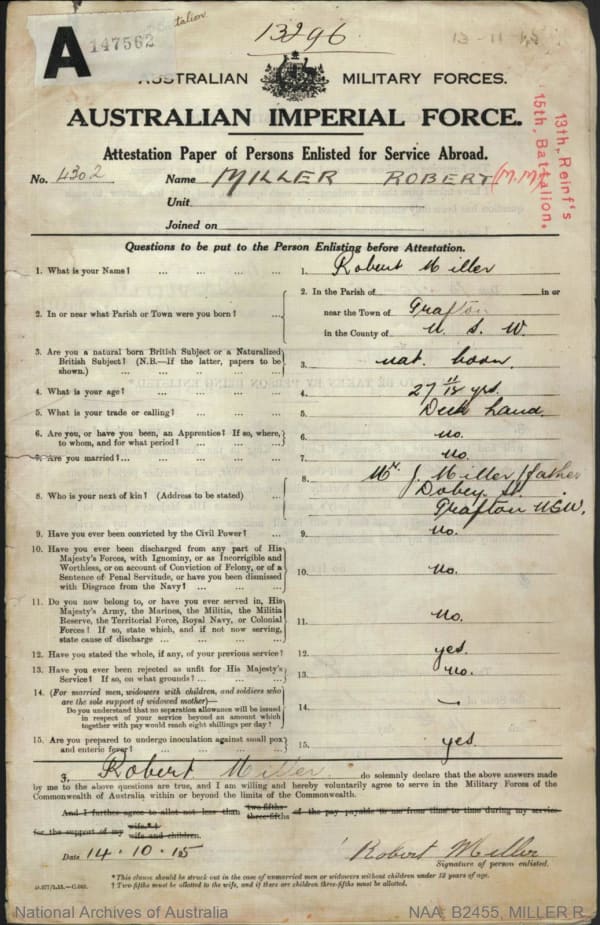 talion.
A
147562
13296
13-11-15
AUSTRALIAN MILITARY FORCES.
AUSTRALIAN IMPERIAL FORCE.
13th, Reinf's
15th, Battalion.
Attestation Paper of Persons Enlisted for Service Abroad.
No. 4302 Name MILLER ROBERT (M.M)
Unit
Joined on
Questions to be put to the Person Enlisting before Attestation.
1. What is your Name? ... ... ... ... 1. Robert Miller
2. In or near what Parish or Town were you born? ... 2. In the Parish of in or
near the Town of Grafton
in the County of N. S. W.
3. Are you a natural born British Subject or a Naturalized
British Subject? (N.B.—If the latter, papers to be
shown.) ... ... ... ... ... 3. nat. born.
4. What is your age? ... ... ... ... 4. 27 11/12 yrs.
5. What is your trade or calling? ... ... ... 5. Deck hand.
6. Are you, or have you been, an Apprentice? If so, where,
to whom, and for what period? ... ... ... 6. no.
7. Are you married?... ... ... ... ... 7. no.
8. Who is your next of kin? (Address to be stated) ... 8. Mr. J. Miller / father
Dobey St.
Grafton NSW.
9. Have you ever been convicted by the Civil Power? ... 9. no.
10. Have you ever been discharged from any part of His
Majesty's Forces, with Ignominy, or as Incorrigible and
Worthless, or on account of Conviction of Felony, or of a
Sentence of Penal Servitude, or have you been dismissed
with Disgrace from the Navy? ... ... ... 10. no.
11. Do you now belong to, or have you ever served in, His
Majesty's Army, the Marines, the Militia, the Militia
Reserve, the Territorial Force, Royal Navy, or Colonial
Forces? If so, state which, and if not now serving,
state cause of discharge ... ... ... ... 11. no.
12. Have you stated the whole, if any, of your previous service? 12. yes.
13. Have you ever been rejected as unfit for His Majesty's
Service? If so, on what grounds? ... ... ... 13. no.
14. (For married men, widowers with children, and soldiers who
are the sole support of widowed mother)—
Do you understand that no separation allowance will be issued
in respect of your service beyond an amount which
together with pay would reach eight shillings per day? 14. —
15. Are you prepared to undergo inoculation against small pox
and enteric fever? ... ... ... ... 15. yes.
I, Robert Miller do solemnly declare that the above answers made
by me to the above questions are true, and I am willing and hereby voluntarily agree to serve in the Military Forces of the
Commonwealth of Australia within or beyond the limits of the Commonwealth.
And I further agree to allot not less than two-fifths three-fifths of the pay payable to me from time to time during my service
for the support of my wife.*†
wife and children.
Date 14.10.15 Robert Miller
Signature of person enlisted.
*This clause should be struck out in the case of unmarried men or widowers without children under 18 years of age.
† Two-fifths must be allotted to the wife, and if there are children three-fifths must be allotted.
National Archives of Australia NAA: B2455, MILLER R